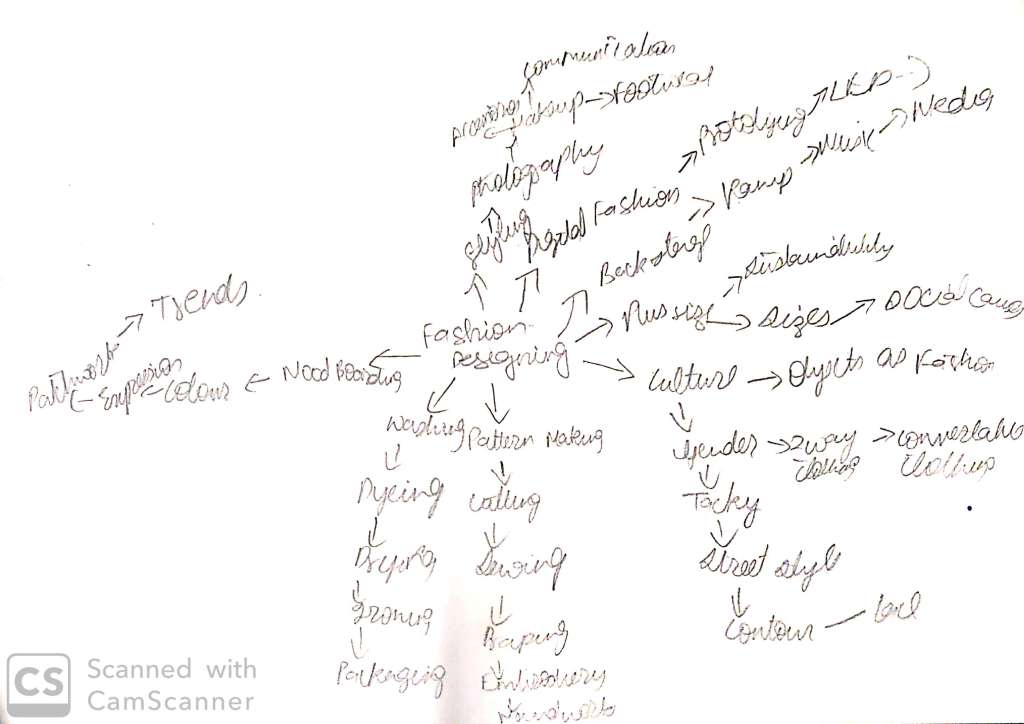 communication
Makeup → Footwear
Photography
Styling
Digital Fashion → Prototyping → LED
Backstage → Ramp → Music → Media
Plus size → Sustainability
→ Sizes → Social Cause
Fashion
Designing
Trends
Patchwork ← Expression ← Colour ← Mood Boarding
Culture → Objects as Fashion
Gender → 2way → convertable
clothing clothing
Tacky
Street style
Contour
Washing
Dyeing
Drying
Ironing
Packaging
Pattern Making
Cutting
Sewing
Draping
Embroidery
Handwork
CS Scanned with
CamScanner